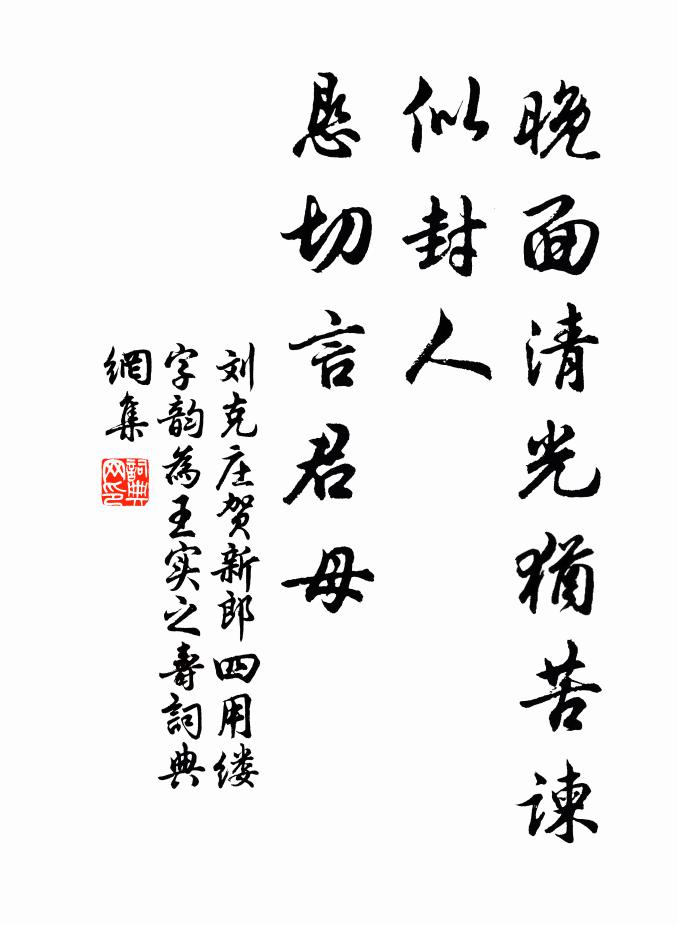 晚面清光猶苦諫
似封人
恳切言君母
刘克庄贺新郎四用缕
字韵為王实之寿詞典
網集
詞典网印